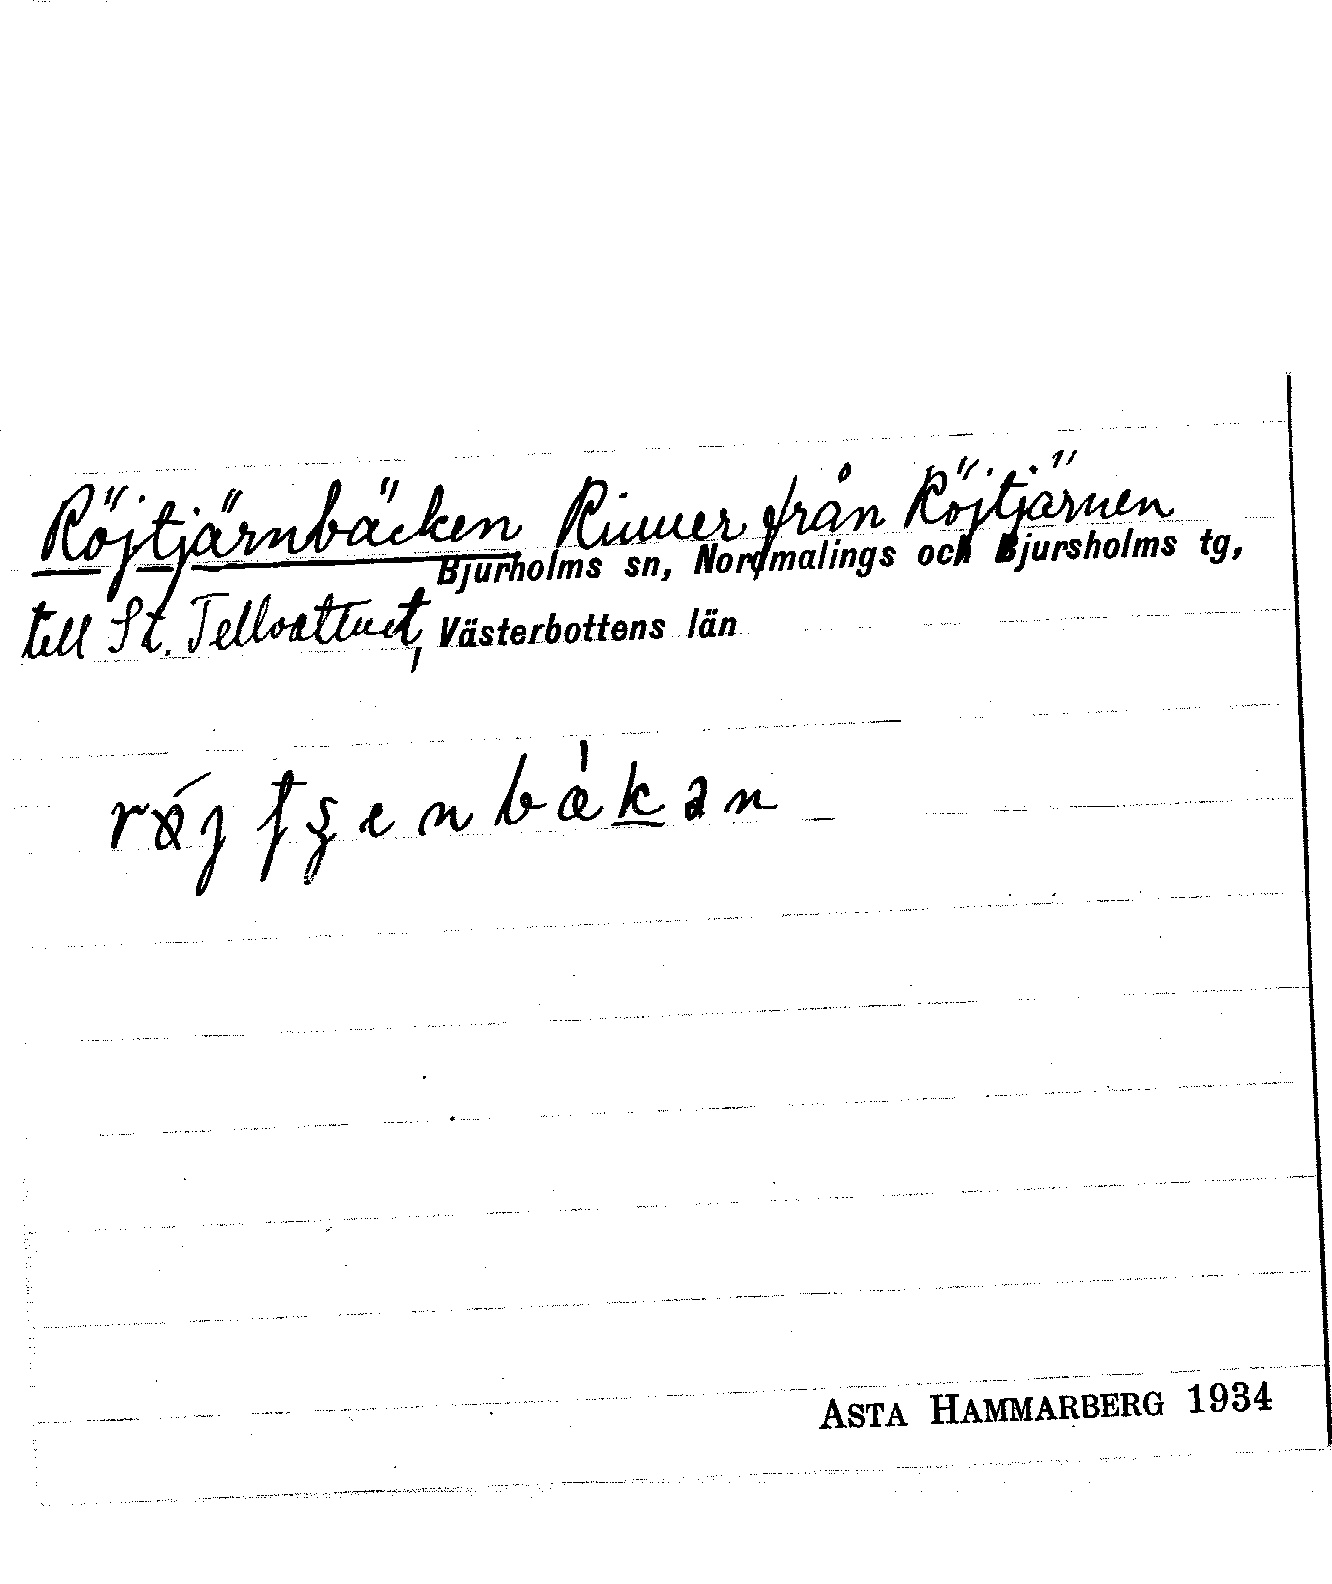 Röjtjärnbäcken Rinner från Röjtjärnen
Bjurholms sn, Nordmalings och Bjursholms tg,
till St. Tellvattnet, Västerbottens län
Asta Hammarberg 1934